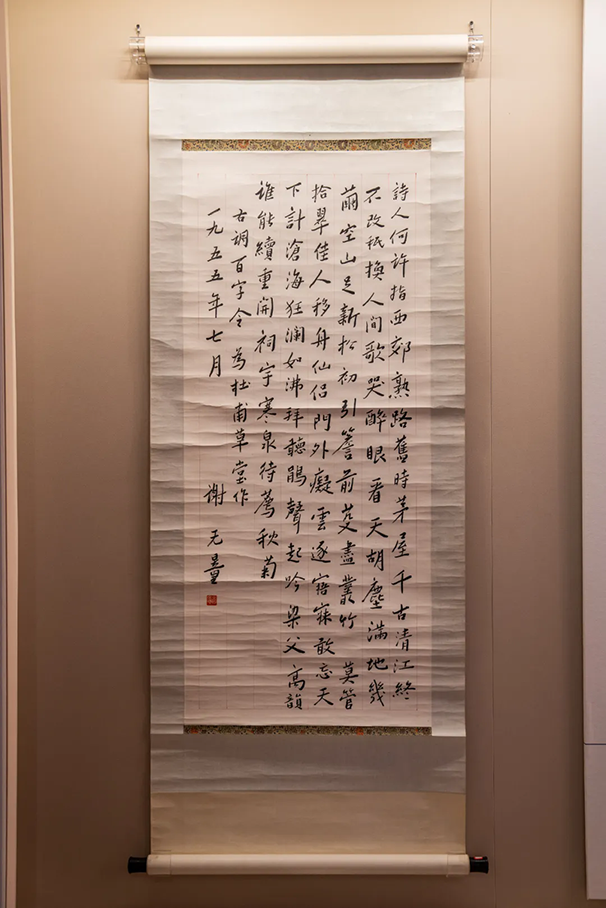 詩人何許指西郊熟路舊時茅屋千古清江終
不改秖換人間歌哭醉眼看天胡塵滿地幾
繭空山足新松初引簷前芟盡叢竹 莫管
拾翠佳人移舟仙侣門外癡雲逐寤寐敢忘天
下計滄海狂澜如沸拜聽鵑聲起吟梁父高韻
谁能續重開祠宇寒泉待薦秋菊
古调百字令 為杜甫草堂作
一九五五年七月 谢无量